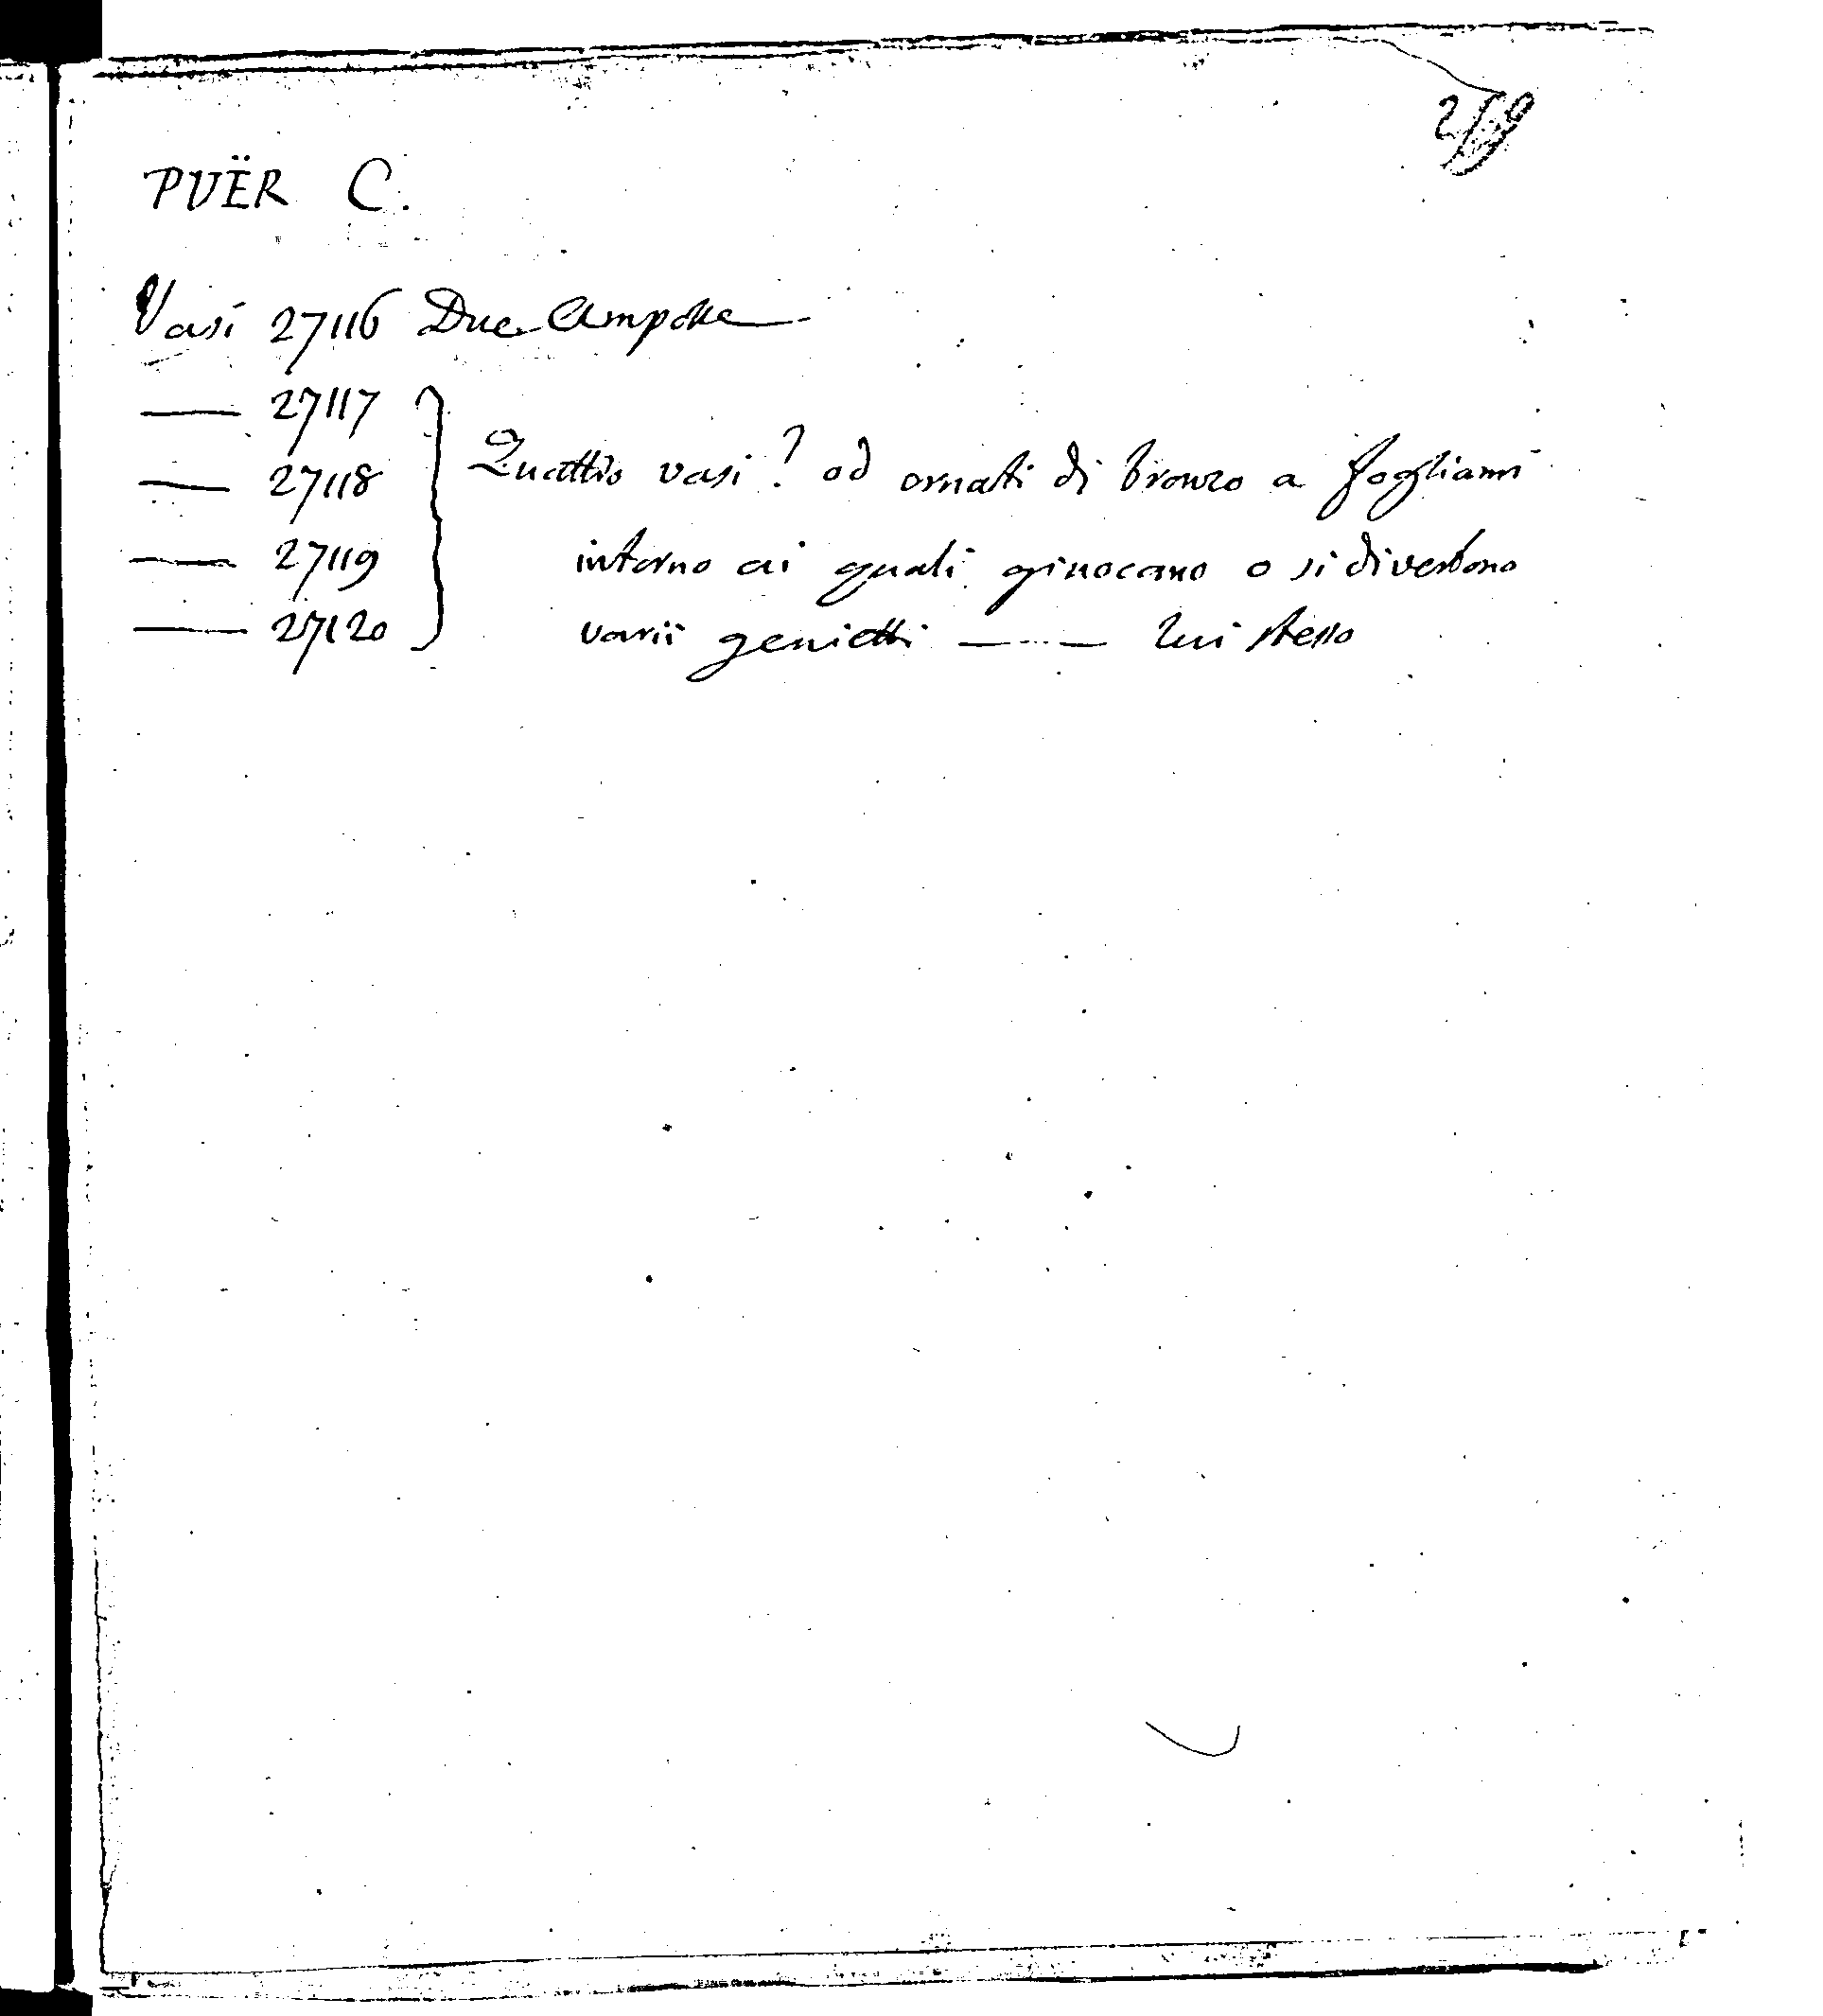 PUËR C.
Vasi 27116 Due Ampolle
— 27117
— 27118 Quattro vasi? od ornati di bronzo a fogliami
— 27119 intorno ai quali giuocano o si divertono
— 27120 varii genietti — ... — lui stesso